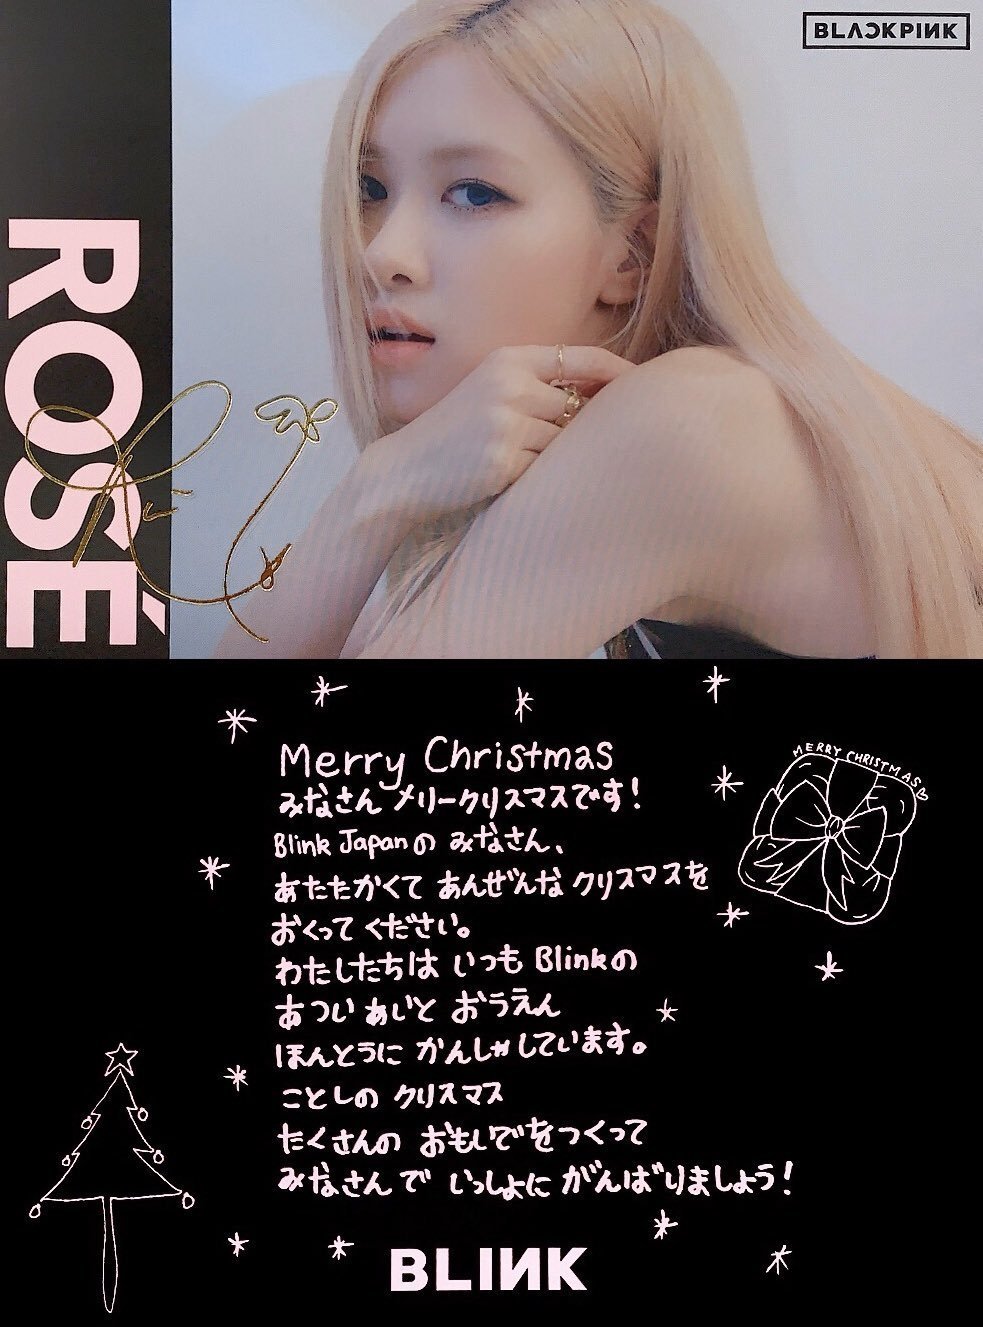 BLACKPINK
ROSÉ
Merry Christmas
みなさん メリークリスマスです!
Blink Japanの みなさん、
あたたかくて あんぜんな クリスマスを
おくって ください。
わたしたちは いつも Blinkの
あつい あいと おうえん
ほんとうに かんしゃしています。
ことしの クリスマス
たくさんの おもいでをつくって
みなさんで いっしょに がんばりましょう!
MERRY CHRISTMAS♡
BLINK